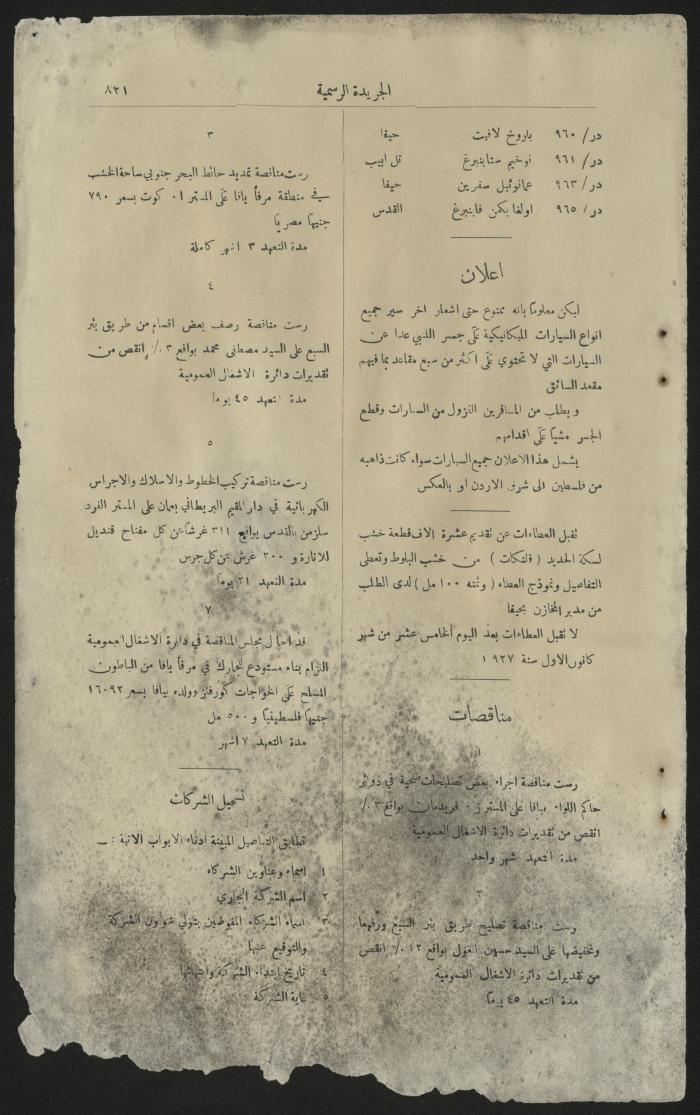 الجريدة الرسمية
٨٢١
در/ ٩٦٠ باروخ لافيت حيفا
در/ ٩٦١ نوخيم ستاينبرغ تل ابيب
در/ ٩٦٣ عمانوئيل سفرين حيفا
در/ ٩٦٥ اولغا بكمن فاينبرغ القدس
اعلان
ليكن معلوماً بانه ممنوع حتى اشعار آخر سير جميع
انواع السيارات الميكانيكية على جسر اللنبي عدا عن
السيارات التي لا تحتوي على اكثر من سبع مقاعد بما فيهم
مقعد السائق
و يطلب من المسافرين النزول من السيارات وقطع
الجسر مشياً على اقدامهم
يشمل هذا الاعلان جميع السيارات سواء كانت ذاهبه
من فلسطين الى شرق الاردن او بالعكس
تقبل العطاءات عن تقديم عشرة الاف قطعة خشب
لسكة الحديد ( فلنكات ) من خشب البلوط وتعطى
التفاصيل ونموذج العطاء ( وثمنه ١٠٠ مل ) لدى الطلب
من مدير المخازن بحيفا
لا تقبل العطاءات بعد اليوم الخامس عشر من شهر
كانون الاول سنة ١٩٢٧
مناقصات
١
رست مناقصة اجراء بعض تصليحات صحية في دوائر
حاكم اللواء بيافا على المستر ز . فريدمان بواقع ٣ ٠/٠
انقص من تقديرات دائرة الاشغال العمومية
مدة التعهد شهر واحد
رست مناقصة تصليح طريق بئر السبع ورفعها
وتخفيضها على السيد حسين الغول بواقع ١٢ ٠/٠ انقص
من تقديرات دائرة الاشغال العمومية
مدة التعهد ٤٥ يوماً
٣
رست مناقصة تمديد حائط البحر جنوبي ساحة الخشب
في منطقة مرفأ يافا على المستر ا٠ كوت بسعر ٧٩٠
جنيهاً مصرياً
مدة التعهد ٣ اشهر كاملة
٤
رست مناقصة رصف بعض اقسام من طريق بئر
السبع على السيد مصطفى محمد بواقع ٣ ٠/٠ انقص من
تقديرات دائرة الاشغال العمومية
مدة التعهد ٤٥ يوما
٥
رست مناقصة تركيب الخطوط والاسلاك والاجراس
الكهربائية في دار المقيم البريطاني بعمان على المستر الفرد
سلزمن بالقدس بواقع ٣١١ غرشاً عن كل مفتاح قنديل
للانارة و ٢٠٠ غرش عن كل جرس
مدة التعهد ٢١ يوماً
٧
قد احال مجلس المناقصة في دائرة الاشغال العمومية
التزام بناء مستودع للجمارك في مرفأ يافا من الباطون
المسلح على الخواجات كورفنز وولده بيافا بسعر ١٦٠٩٢
جنيهاً فلسطينياً و ٥٠٠ مل
مدة التعهد ٧ اشهر
تسجيل الشركات
تطابق التفاصيل المبينة ادناه الابواب الاتية : ــ
١ اسماء وعناوين الشركاء
٢ اسم الشركة التجاري
٣ اسماء الشركاء المفوضين بتولي شؤون الشركة
والتوقيع عنها
٤ تاريخ ابتداء الشركة وانتهائها
٥ غاية الشركة